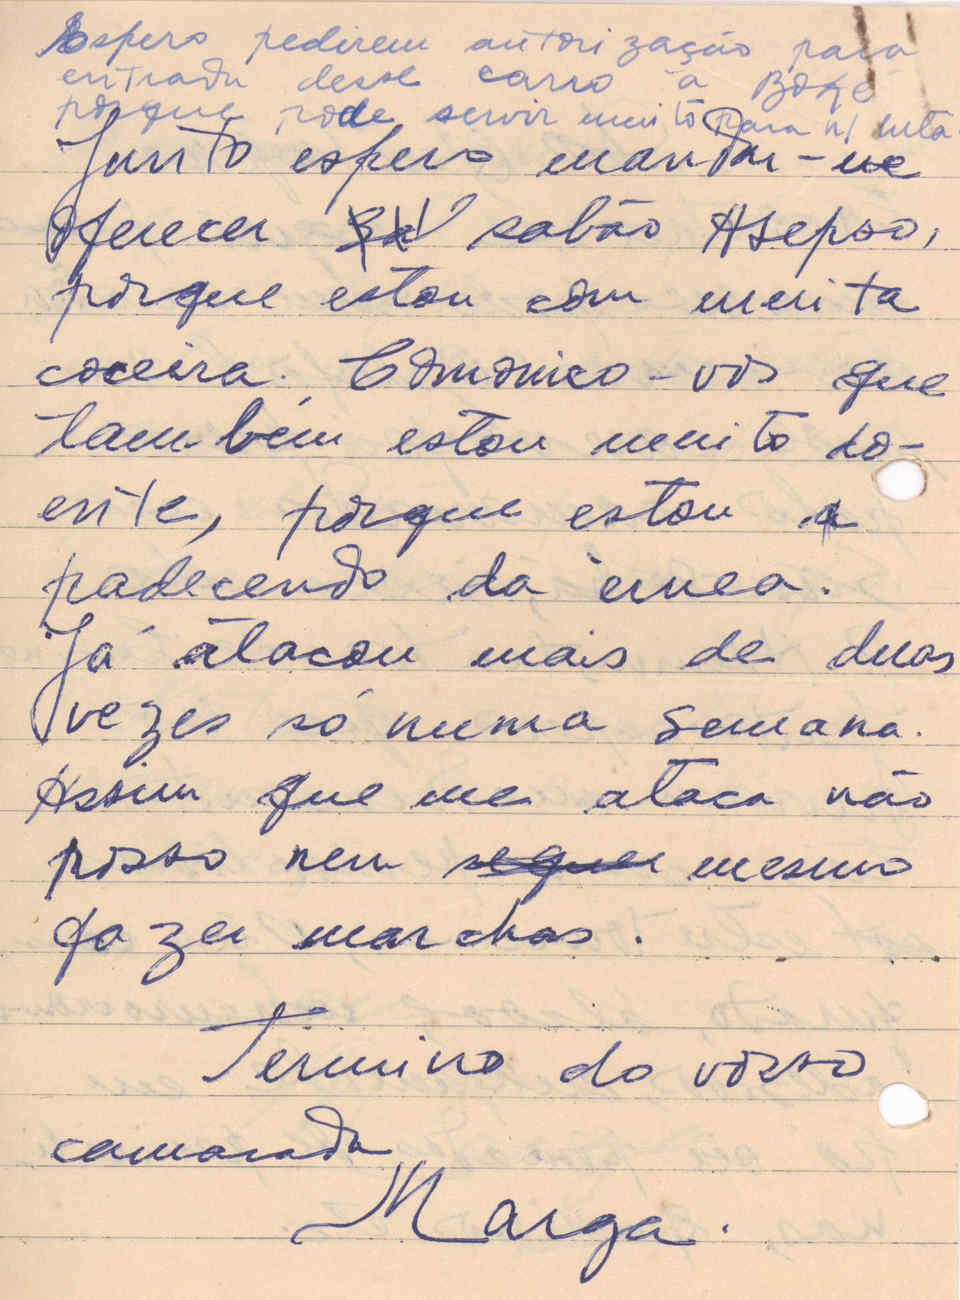 Espero pedirem autorização para
entrada desse carro a Boké
porque pode servir muito para n/ luta
Junto espero mandar-me
oferecer sabão Asepso,
porque estou com muita
coceira. Comonico-vos que
também estou muito do-
ente, porque estou a
padecendo da érnea.
Já atacou mais de duas
vezes só numa semana.
Assim que me ataca não
posso nem sequer mesmo
fazer marchas.
Termino do vosso
camarada
Marga.